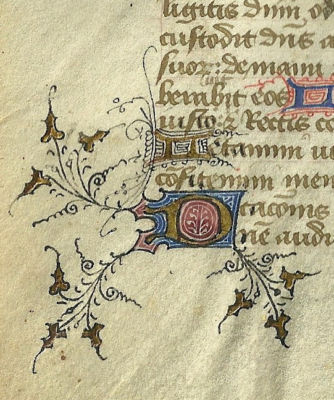 ligitis dnm od
custodit dns a
suor: de manu
berabit eos L
iusto: ⁊ Rectis co
Letamini iu
cofitemini mem
cacions
ne audi